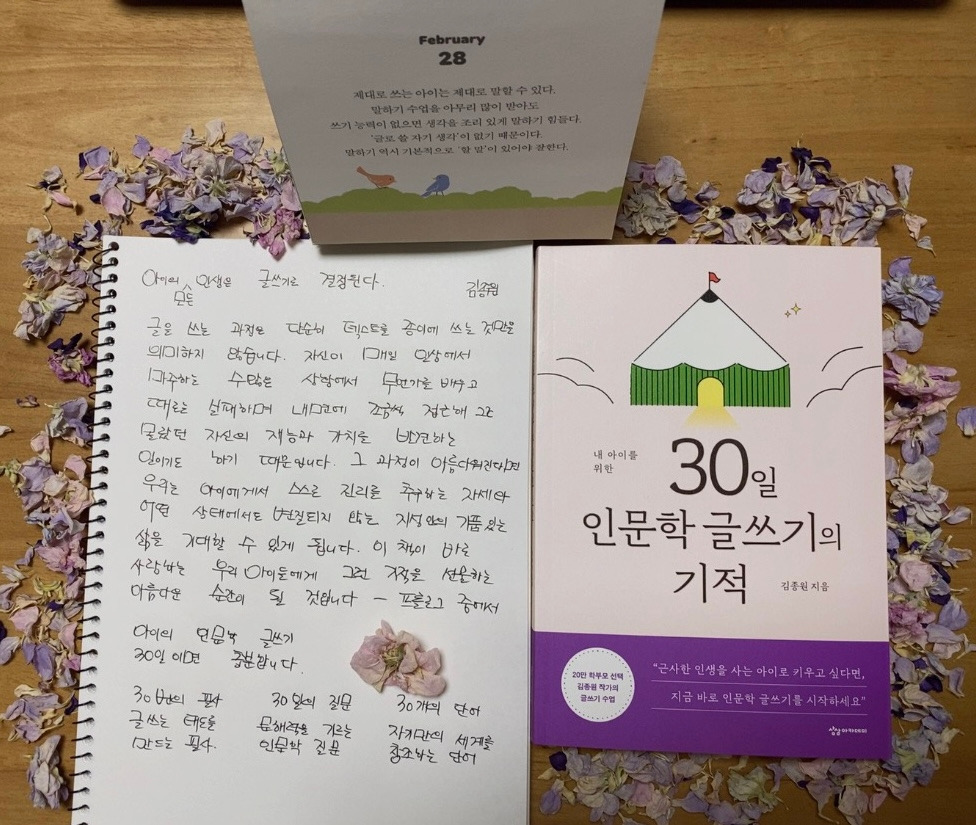 February
28
제대로 쓰는 아이는 제대로 말할 수 있다.
말하기 수업을 아무리 많이 받아도
쓰기 능력이 없으면 생각을 조리 있게 말하기 힘들다.
'글로 쓸 자기 생각'이 없기 때문이다.
말하기 역시 기본적으로 '할 말'이 있어야 잘한다.
아이의 모든 인생은 글쓰기로 결정된다.
김종원
글을 쓰는 과정은 단순히 텍스트를 종이에 쓰는 것만을
의미하지 않습니다. 자신이 매일 일상에서
마주하는 수많은 상황에서 무언가를 배우고
때로는 실패하며 내면에 조금씩 접근해 그간
몰랐던 자신의 재능과 가치를 발견하는
일이기도 하기 때문입니다. 그 과정이 아름다워진다면
우리는 아이에게서 스스로 진리를 추구하는 자세와
어떤 상태에서도 변질되지 않는 지성인의 기품 있는
삶을 기대할 수 있게 됩니다. 이 책이 바로
사랑하는 우리 아이들에게 그런 기적을 선물하는
아름다운 순간이 될 것입니다 - 프롤로그 중에서
아이의 인문학 글쓰기
30일 이면 충분합니다.
30번의 필사
글쓰는 태도를
만드는 필사.
30일의 질문
문해력을 기르는
인문학 질문
30개의 단어
자기만의 세계를
창조하는 단어
내 아이를
위한
30일
인문학 글쓰기의
기적
김종원 지음
20만 학부모 선택
김종원 작가의
글쓰기 수업
"근사한 인생을 사는 아이로 키우고 싶다면,
지금 바로 인문학 글쓰기를 시작하세요"
상상아카데미